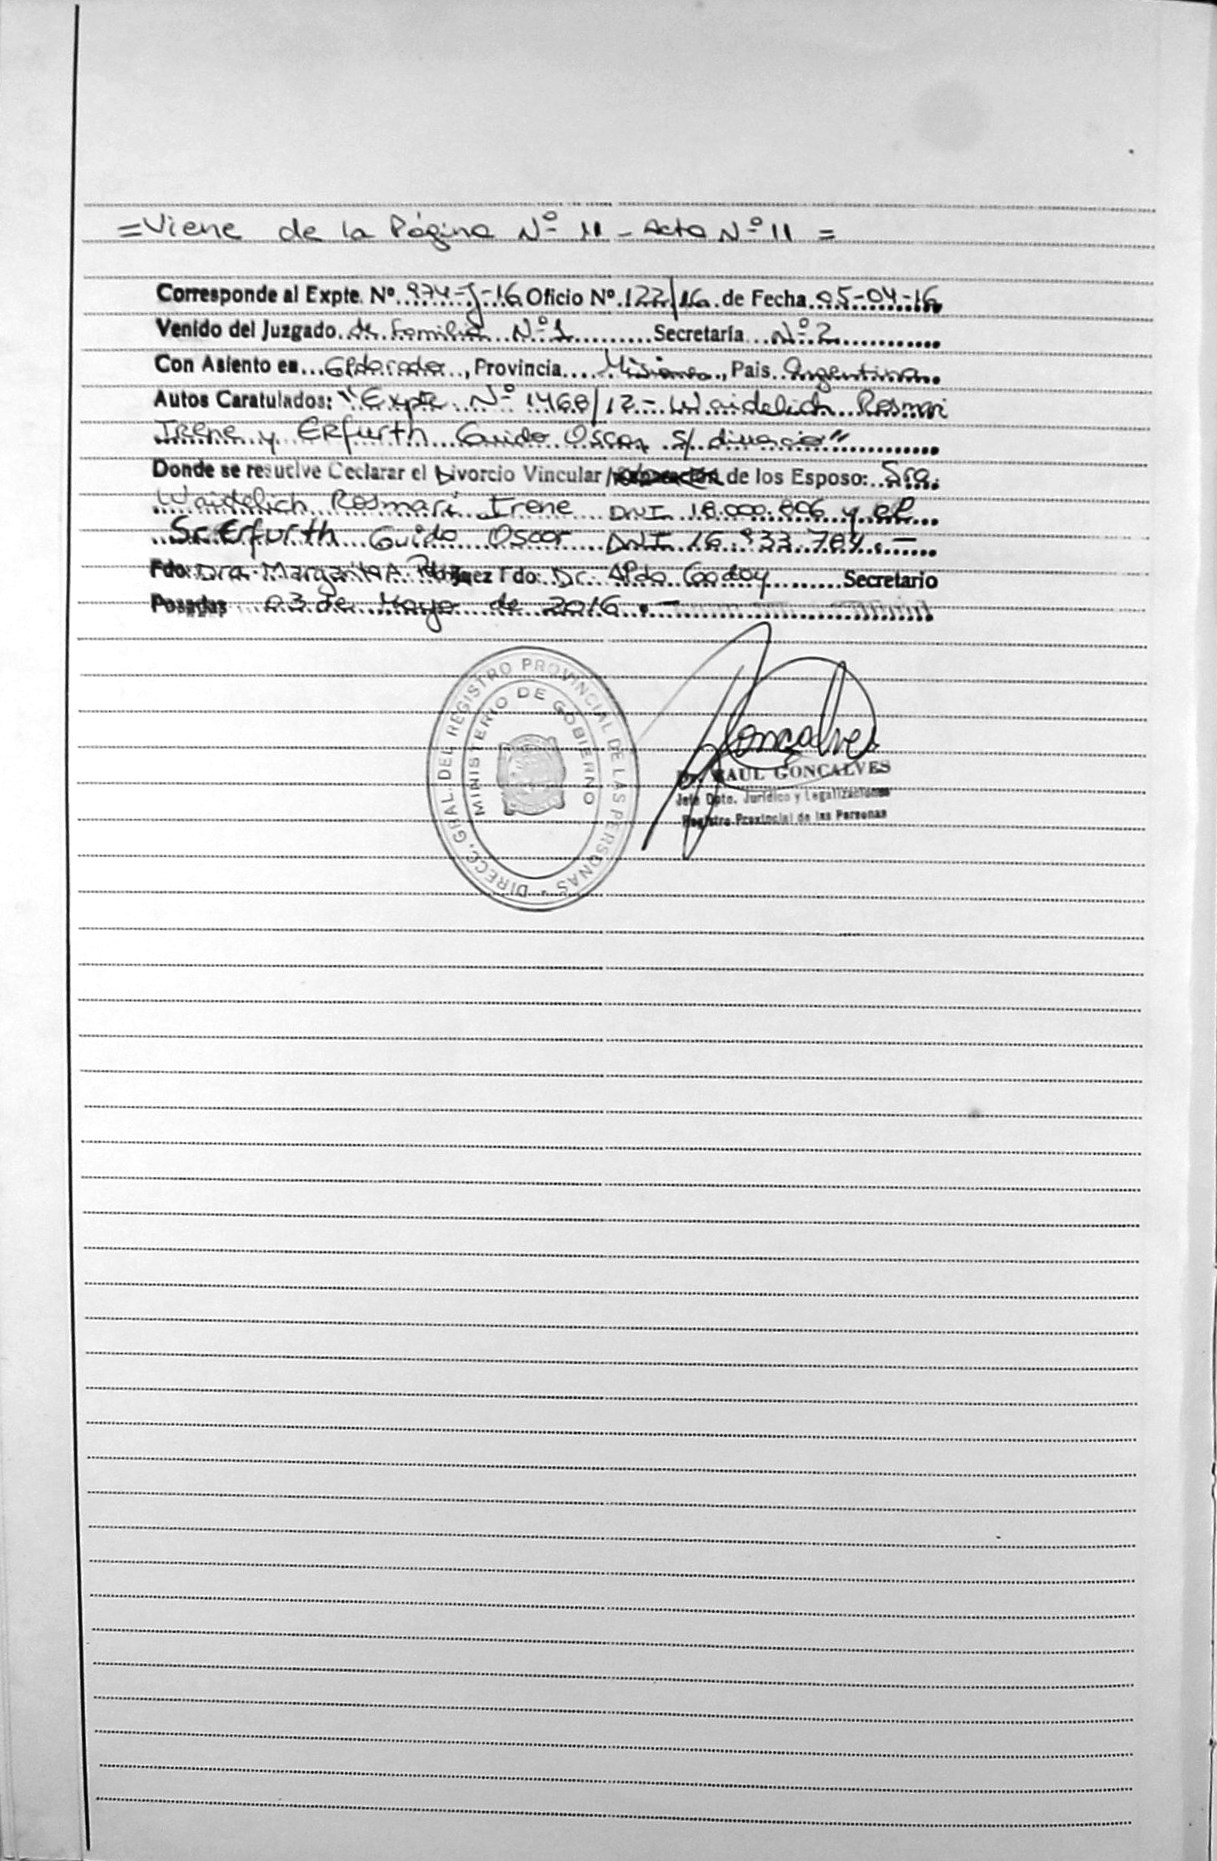 =Viene de la Página Nº 11 - Acta Nº 11 =
Corresponde al Expte. Nº 974-J-16 Oficio Nº 122/16 de Fecha 05-04-16
Venido del Juzgado de Familia Nº 1 Secretaría Nº 2
Con Asiento en Eldorado, Provincia Misiones, País Argentina
Autos Caratulados: "Expte Nº 1468/12 - Waidelich Rosmari
Irene y Erfurth Guido Oscar s/ divorcio"
Donde se resuelve Declarar el Divorcio Vincular / de los Esposo: Sra.
Waidelich Rosmari Irene DNI 18.000.806 y el
Sr. Erfurth Guido Oscar DNI 16.833.784.-
Fdo: Dra. Margarita A. Juez Fdo: Dr. Aldo Godoy Secretario
Posadas 03 de Mayo de 2016.-
DIRECC. GRAL DEL REGISTRO PROVINCIAL DE LAS PERSONAS -
MINISTERIO DE GOBIERNO
Goncalves
Dr. RAUL GONCALVES
Jefe Dpto. Jurídico y Legalizaciones
Registro Provincial de las Personas